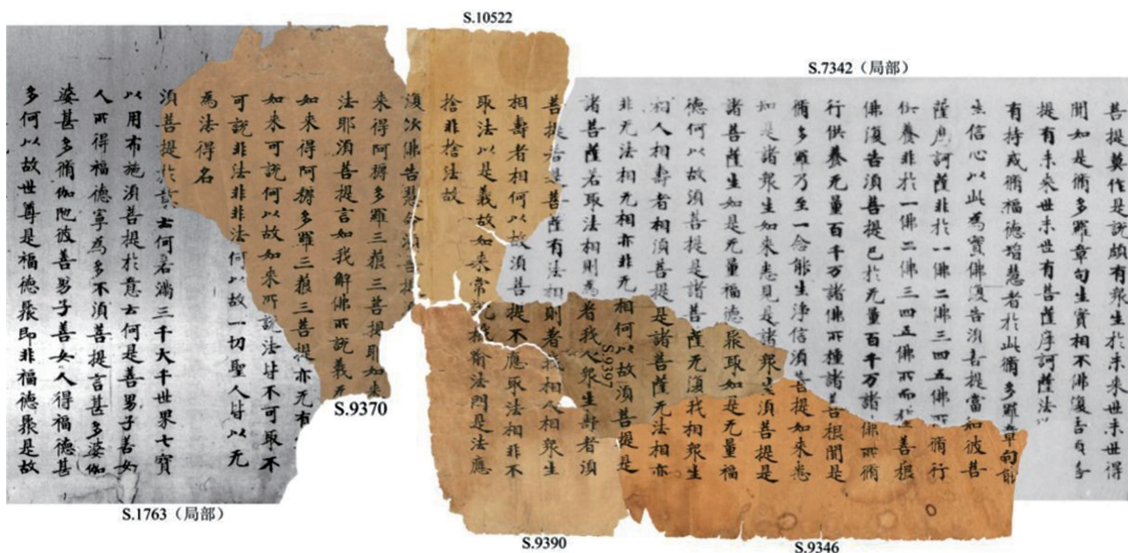 S.10522
S.7342（局部）
菩提莫作是説頗有衆生於未來世末世得
聞如是脩多羅章句生實相不佛復告須菩
提有未來世末世有菩薩摩訶薩法
有持戒脩福德智慧者於此脩多羅章句能
生信心以此為實佛復告須菩提當知彼菩
薩摩訶薩非於一佛二佛三四五佛所脩行
供養非於一佛二佛三四五佛所而種善根
佛復告須菩提已於无量百千万諸佛所脩
行供養无量百千万諸佛所種諸善根聞是
脩多羅乃至一念能生淨信須菩提如來悉
知是諸衆生如來悉見是諸衆生須菩提是
諸菩薩生如是无量福德聚取如是无量福
德何以故須菩提是諸菩薩无復我相衆生
相人相壽者相須菩提是諸菩薩无法相亦
非无法相无相亦非无相何以故須菩提是
諸菩薩若取法相則為著我人衆生壽者須
菩提若是菩薩有法相則著我相人相衆生
相壽者相何以故須菩提不應取法相非不
取法以是義故如來常説栰喻法門是法應
捨非捨法故
復次佛告慧命須菩提
來得阿耨多羅三藐三菩提耶如來
法耶須菩提言如我解佛所説義无
如來得阿耨多羅三藐三菩提亦无有
如來可説何以故如來所説法皆不可取不
可説非法非非法何以故一切聖人皆以无
為法得名
須菩提於意云何若滿三千大千世界七寶
以用布施須菩提於意云何是善男子善女
人所得福德寧為多不須菩提言甚多婆伽
婆甚多脩伽陁彼善男子善女人得福德甚
多何以故世尊是福德聚即非福德聚是故
S.9397
S.9370
S.1763（局部）
S.9390
S.9346